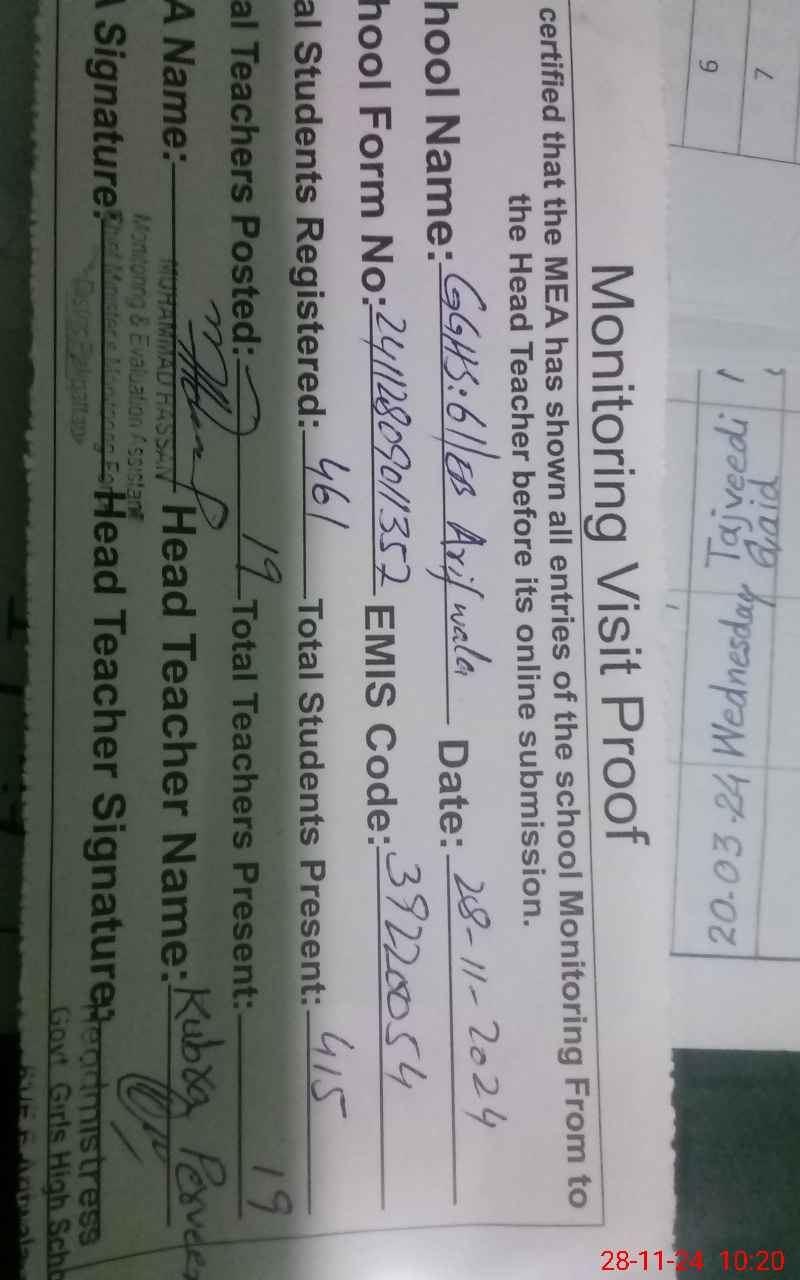 Monitoring Visit Proof
certified that the MEA has shown all entries of the school Monitoring From to
the Head Teacher before its online submission.
hool Name: GGHS: 61/EB Arifwala Date: 28-11-2024
hool Form No: 24112809011357 EMIS Code: 39220054
al Students Registered: 461 Total Students Present: 415
al Teachers Posted: 19 Total Teachers Present: 19
A Name: MUHAMMAD HASSAN Head Teacher Name: Kubra Perveen
Monitoring & Evaluation Assistant
A Signature: Head Teacher Signature:
Chief Minister's Monitoring Fo
District Pakpattan
Headmistress
Govt Girls High Scho
7
9
20.03.24 Wednesday
28-11-24 10:20